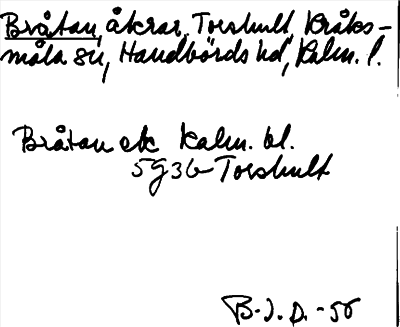 Bråtan, åkrar, Torshult, Kråks-
måla sn, Handbörds hd, Kalm. l.
Bråtan ek Kalm. bl.
5g3b Torshult
B.J.D. -56